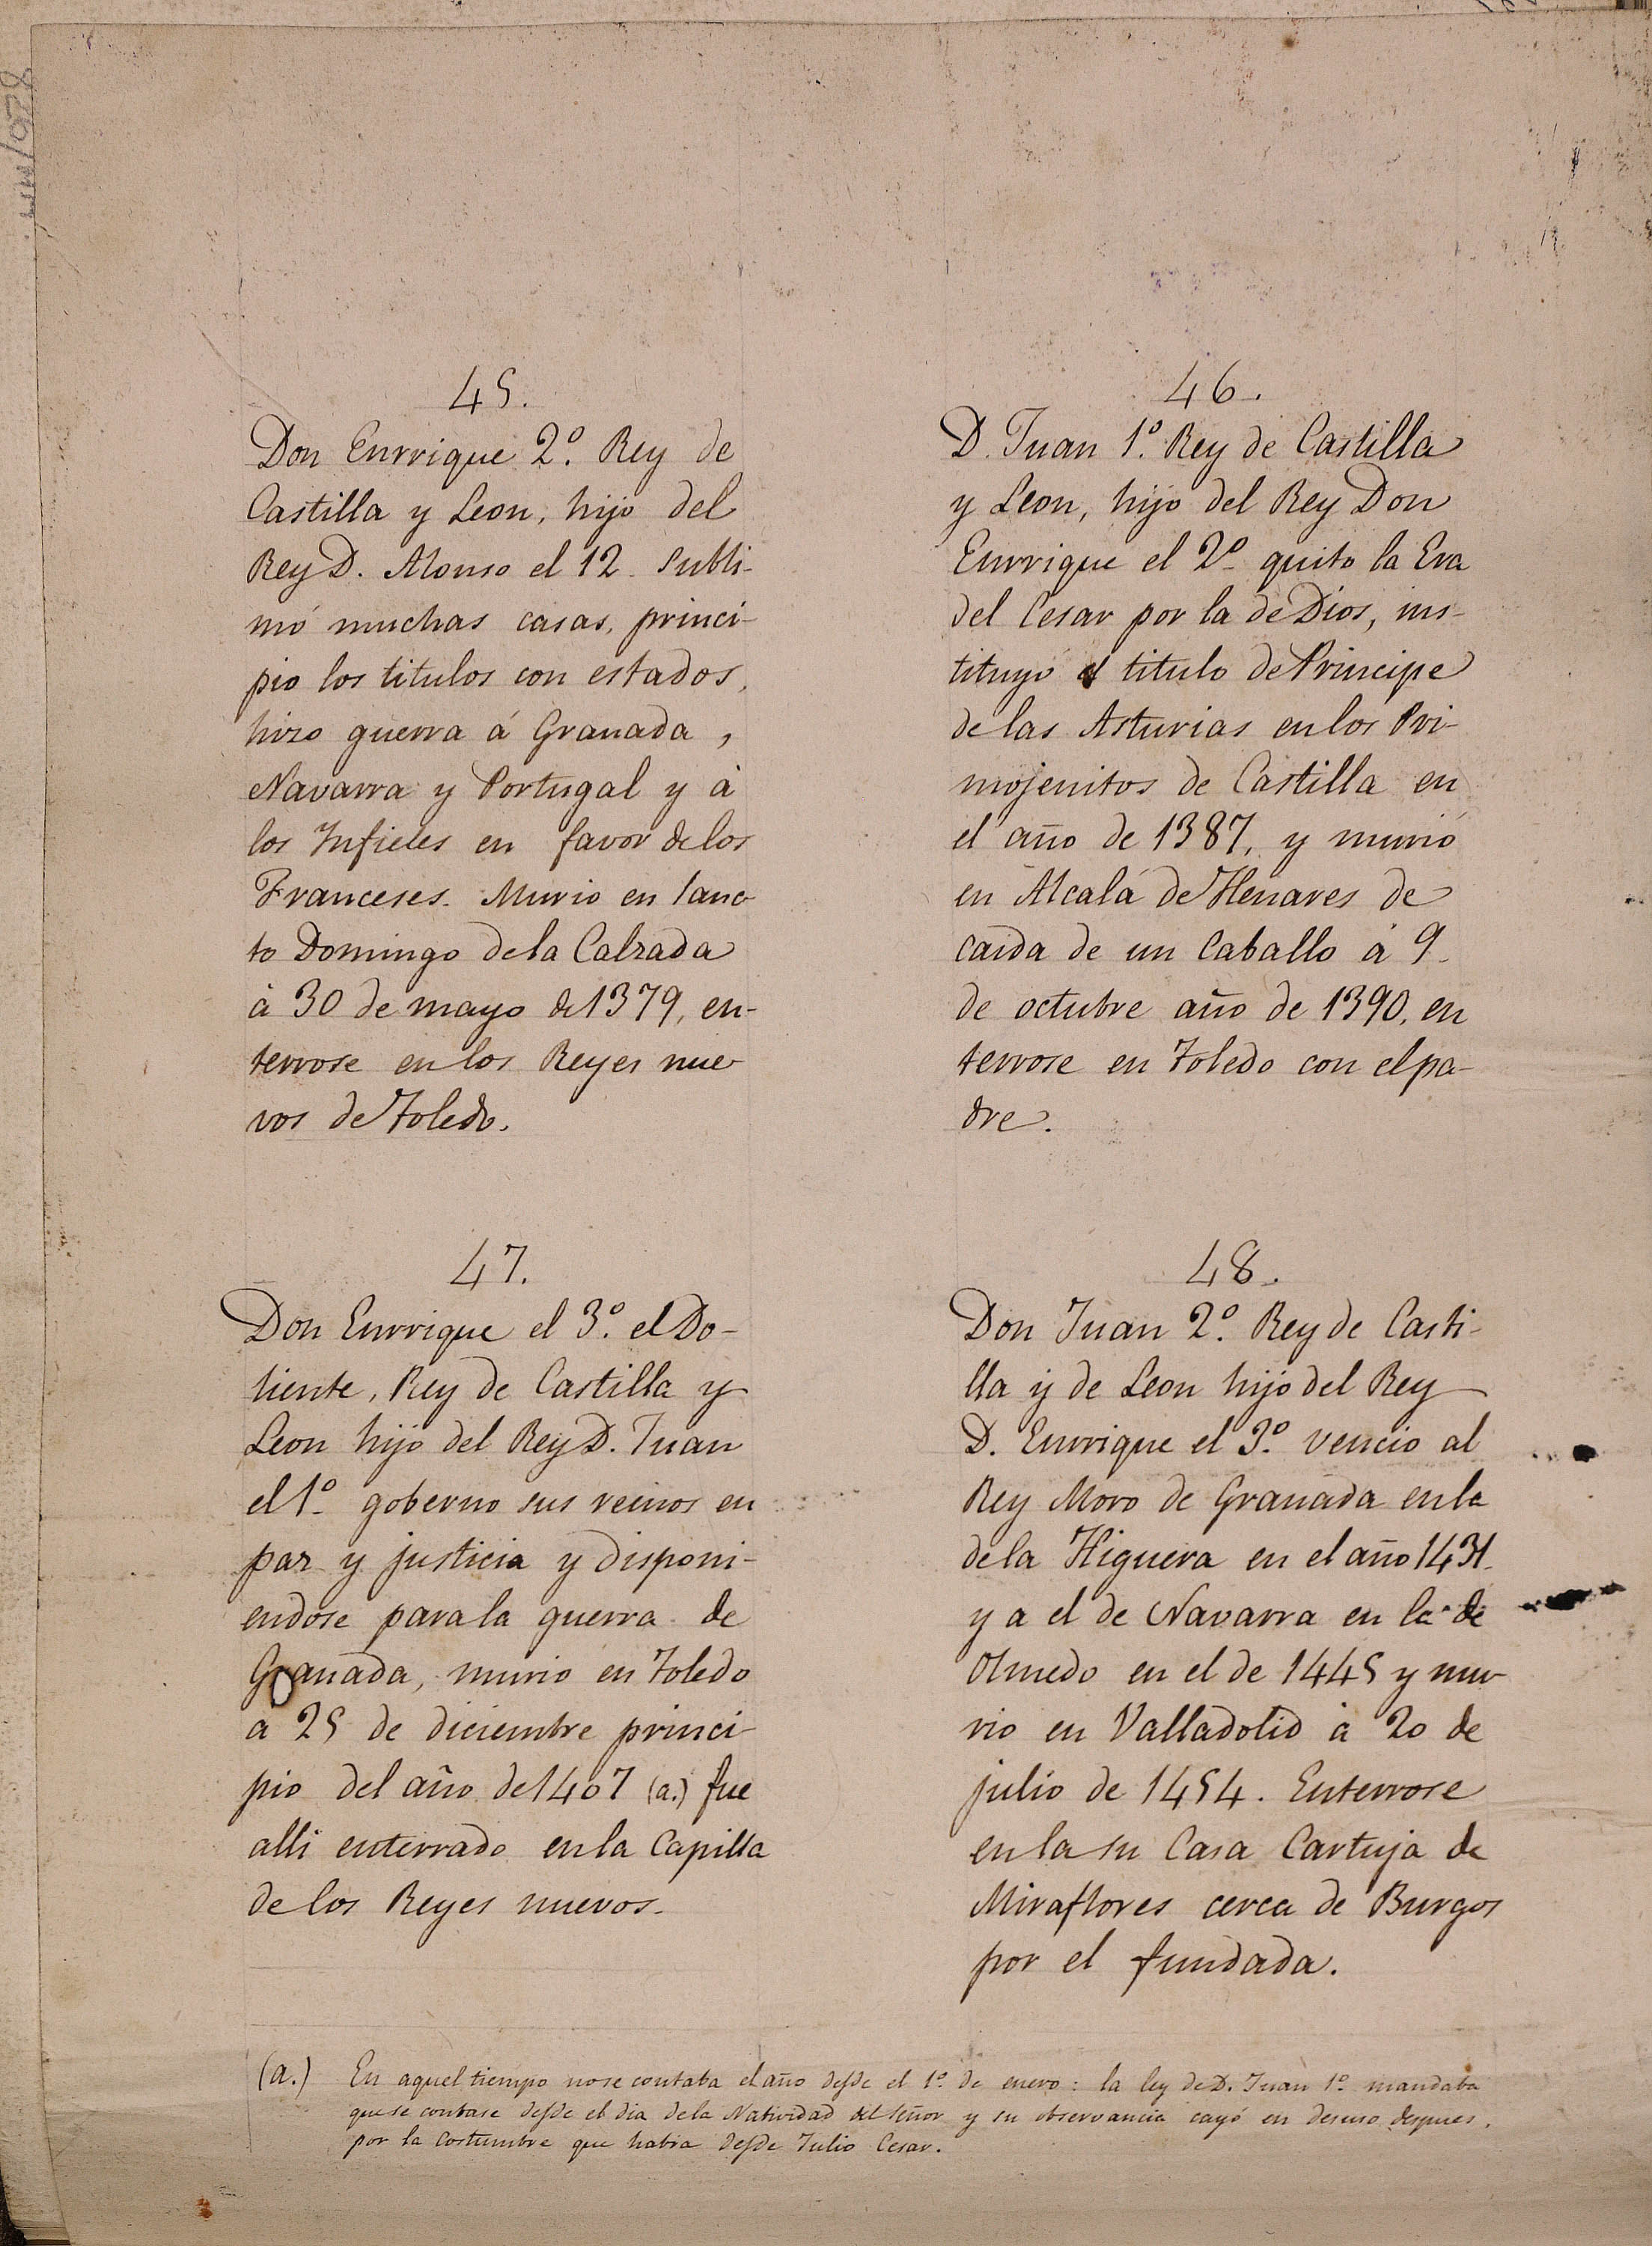 45.
Don Enrrique 2º. Rey de
Castilla y Leon, hijo del
Rey D. Alonso el 12. Subli-
mó muchas casas, princi-
pio los titulos con estados,
hizo guerra á Granada,
Navarra y Portugal y à
los Infieles en favor de los
Franceses. Murio en Sanc-
to Domingo de la Calzada
à 30 de mayo de 1379, en-
terrose en los Reyes nue-
vos de Toledo.
46.
D. Juan 1º. Rey de Castilla
y Leon, hijo del Rey Don
Enrrique el 2º quito la Era
del Cesar por la de Dios, ins-
tituyó el titulo de Principe
de las Asturias en los Pri-
mojenitos de Castilla en
el año de 1387, y murió
en Alcalá de Henares de
caida de un Caballo à 9
de octubre año de 1390, en
terrose en Toledo con el pa-
dre.
47.
Don Enrrique el 3º. el Do-
liente, Rey de Castilla y
Leon hijo del Rey D. Juan
el 1º goberno sus reinos en
paz y justicia y disponi-
endose para la guerra de
Granada, murio en Toledo
a 25 de diciembre princi-
pio del año de 1407 (a.) fue
alli enterrado en la Capilla
de los Reyes nuevos.
48.
Don Juan 2º. Rey de Casti-
lla y de Leon hijo del Rey
D. Enrrique el 3º. vencio al
Rey Moro de Granada en la
de la Higuera en el año 1431
y a el de Navarra en la de
Olmedo en el de 1445 y mu-
rio en Valladolid à 20 de
julio de 1454. Enterrose
en la su Casa Cartuja de
Miraflores cerca de Burgos
por el fundada.
(a.) En aquel tiempo no se contaba el año desde el 1º. de enero: la ley de D. Juan 1º. mandaba
que se contase desde el dia de la Natividad del Señor y su observancia cayó en desuso despues,
por la costumbre que habia desde Julio Cesar.